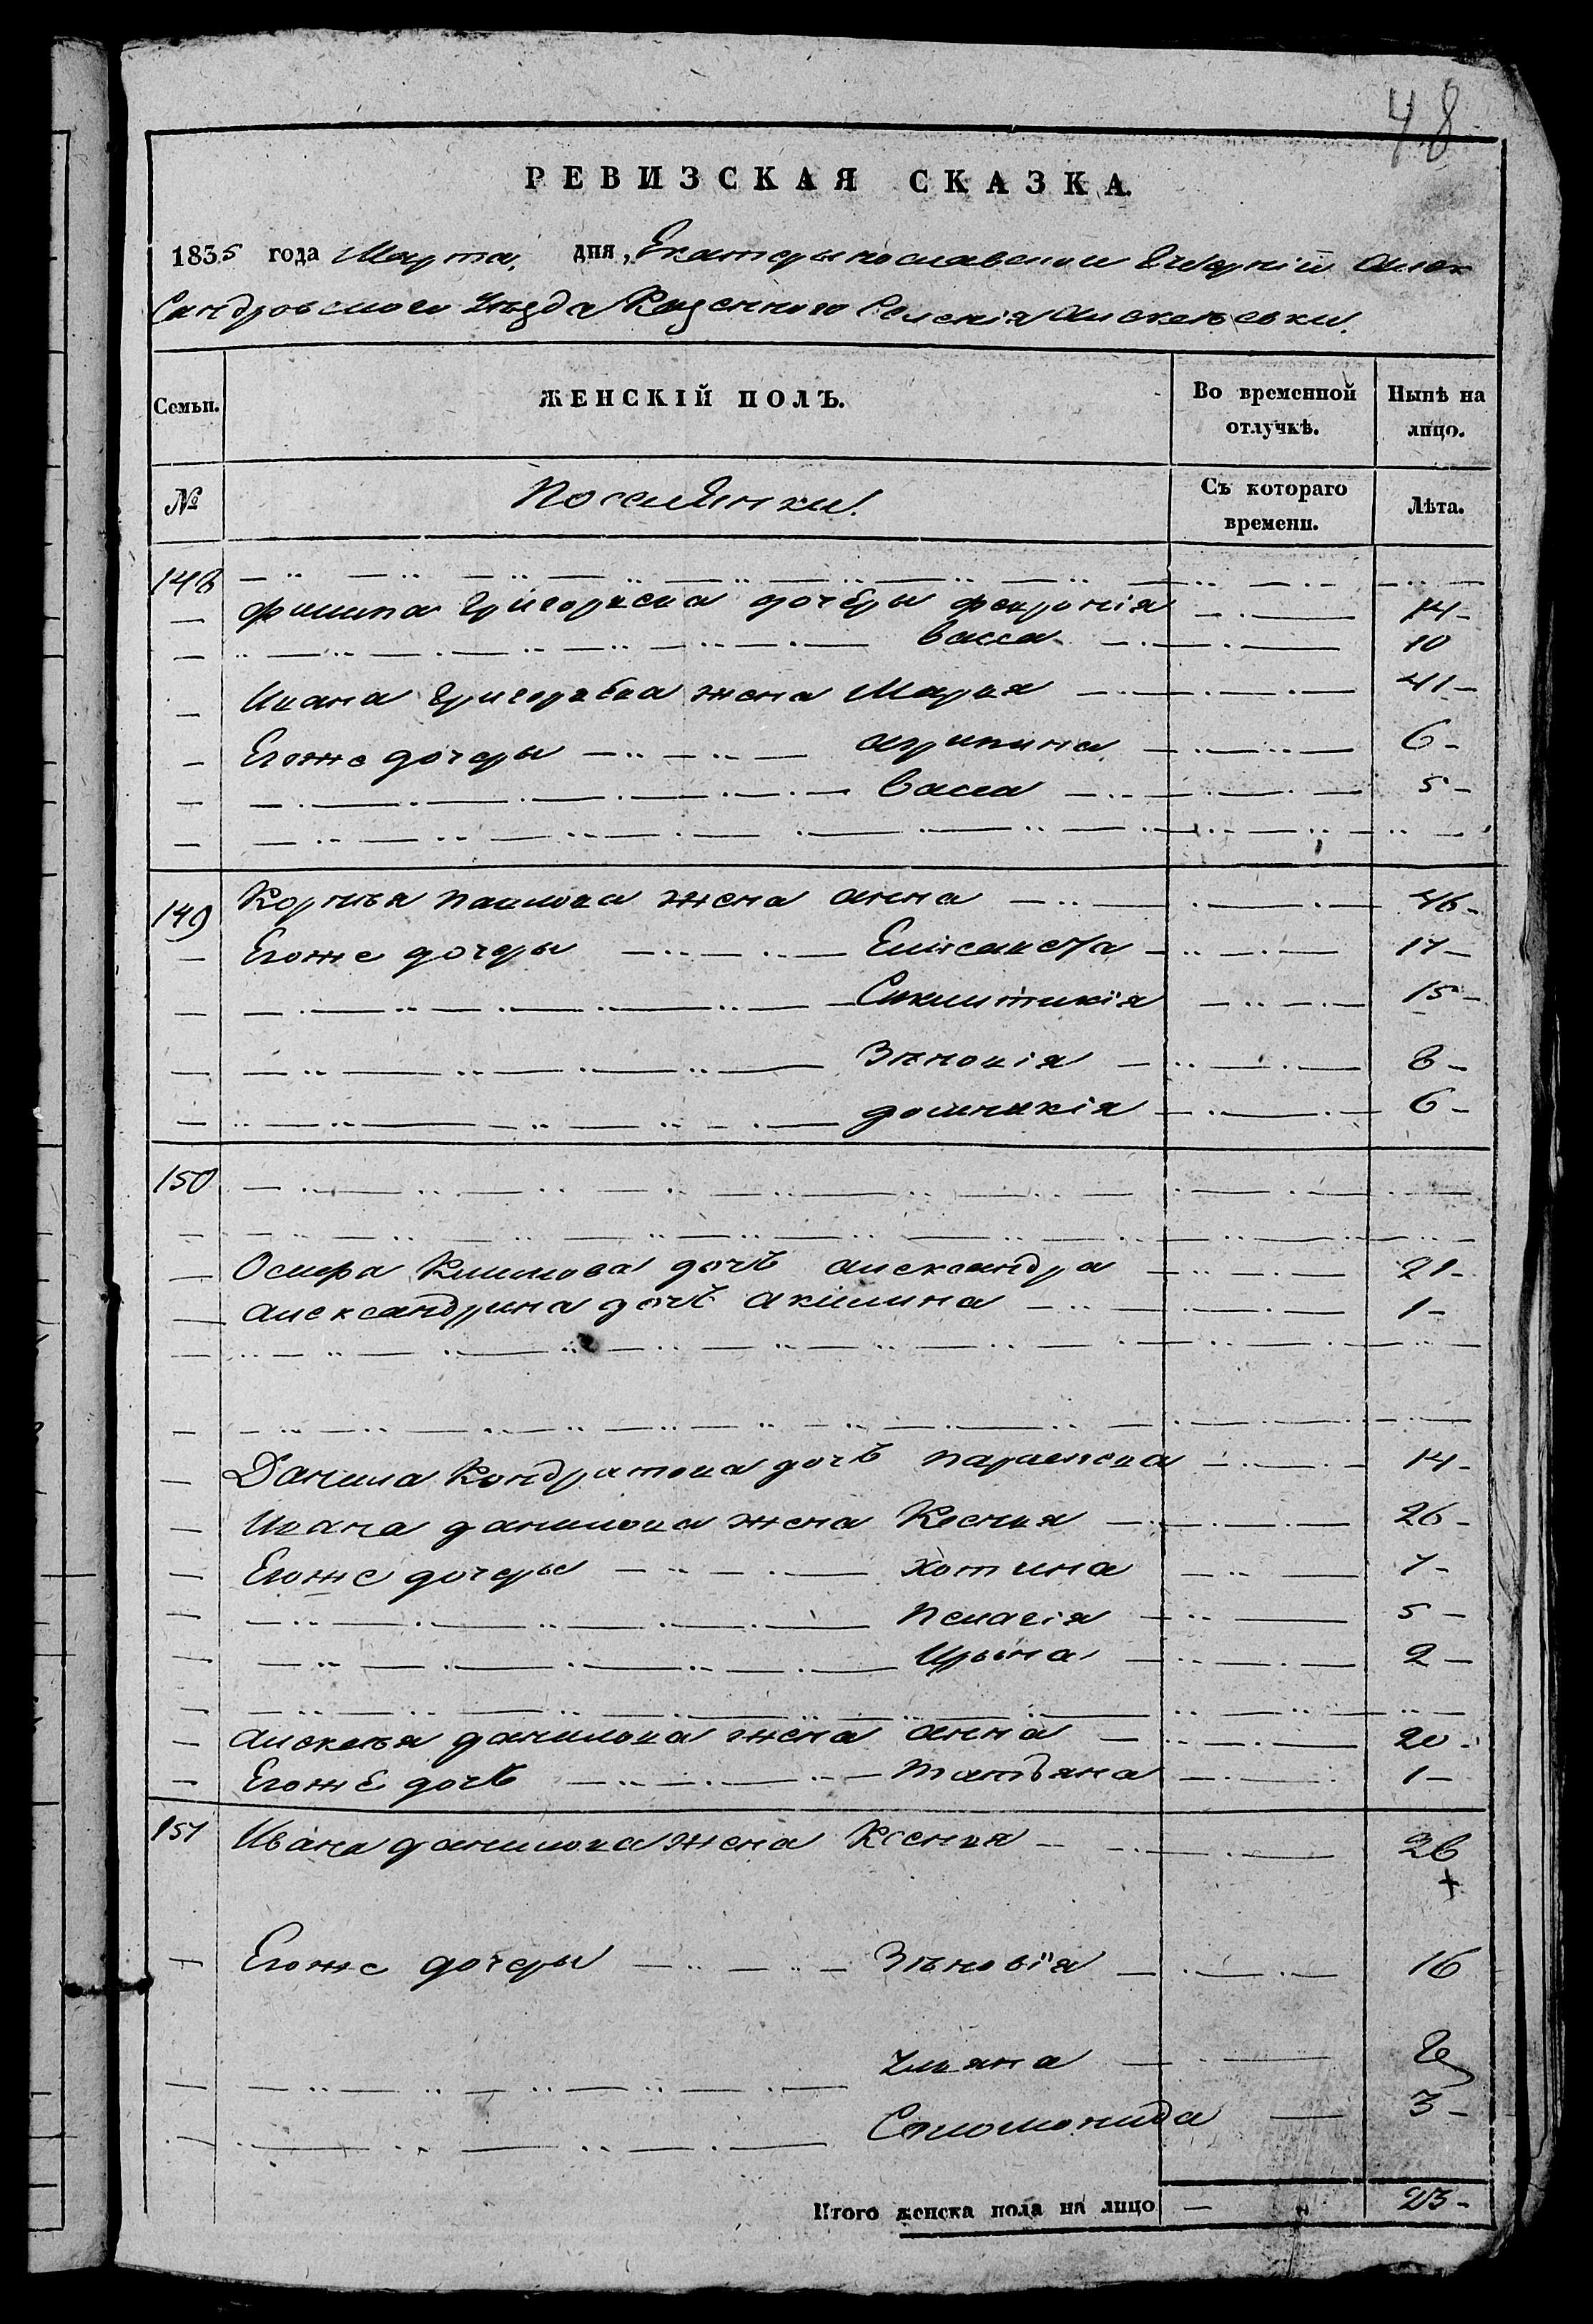 48
РЕВИЗСКАЯ СКАЗКА.
1835 года Марта, дня, Екатеринославской Губерніи Алек
сандровского Уезда Казенного Селенія Алексѣевки.
Семьи. ЖЕНСКІЙ ПОЛЪ. Во временной отлучкѣ. Нынѣ на лицо.
№ Поселянки. Съ котораго времени. Лѣта.
148
Филипа Григорьева дочеры Февронія 14
Васса 10
Ивана Григорьева жена Марья 41
Егоже дочеры Агрипина 6
Васса 5
149 Корнѣя Павлова жена Анна 46
Егоже дочеры Елисавета 17
Синклитикія 15
Зѣновія 8
Домникія 6
150
Осипа Климова дочь Александра 21
Александрина дочь Акилина 1
Данила Кондратова дочь Параскева 14
Ивана Данилова жена Ксенья 26
Егоже дочеры Хотина 7
Пелагія 5
Ирына 2
Алексѣя Данилова жена Анна 20
Егоже дочь Татьяна 1
151 Ивана Данилова жена Ксенья
Егоже дочеры Зѣновія 16
Ульяна
Соломонида 3
Итого женска пола на лицо 23